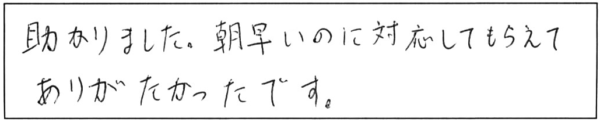 助かりました。朝早いのに対応してもらえて
ありがたかったです。